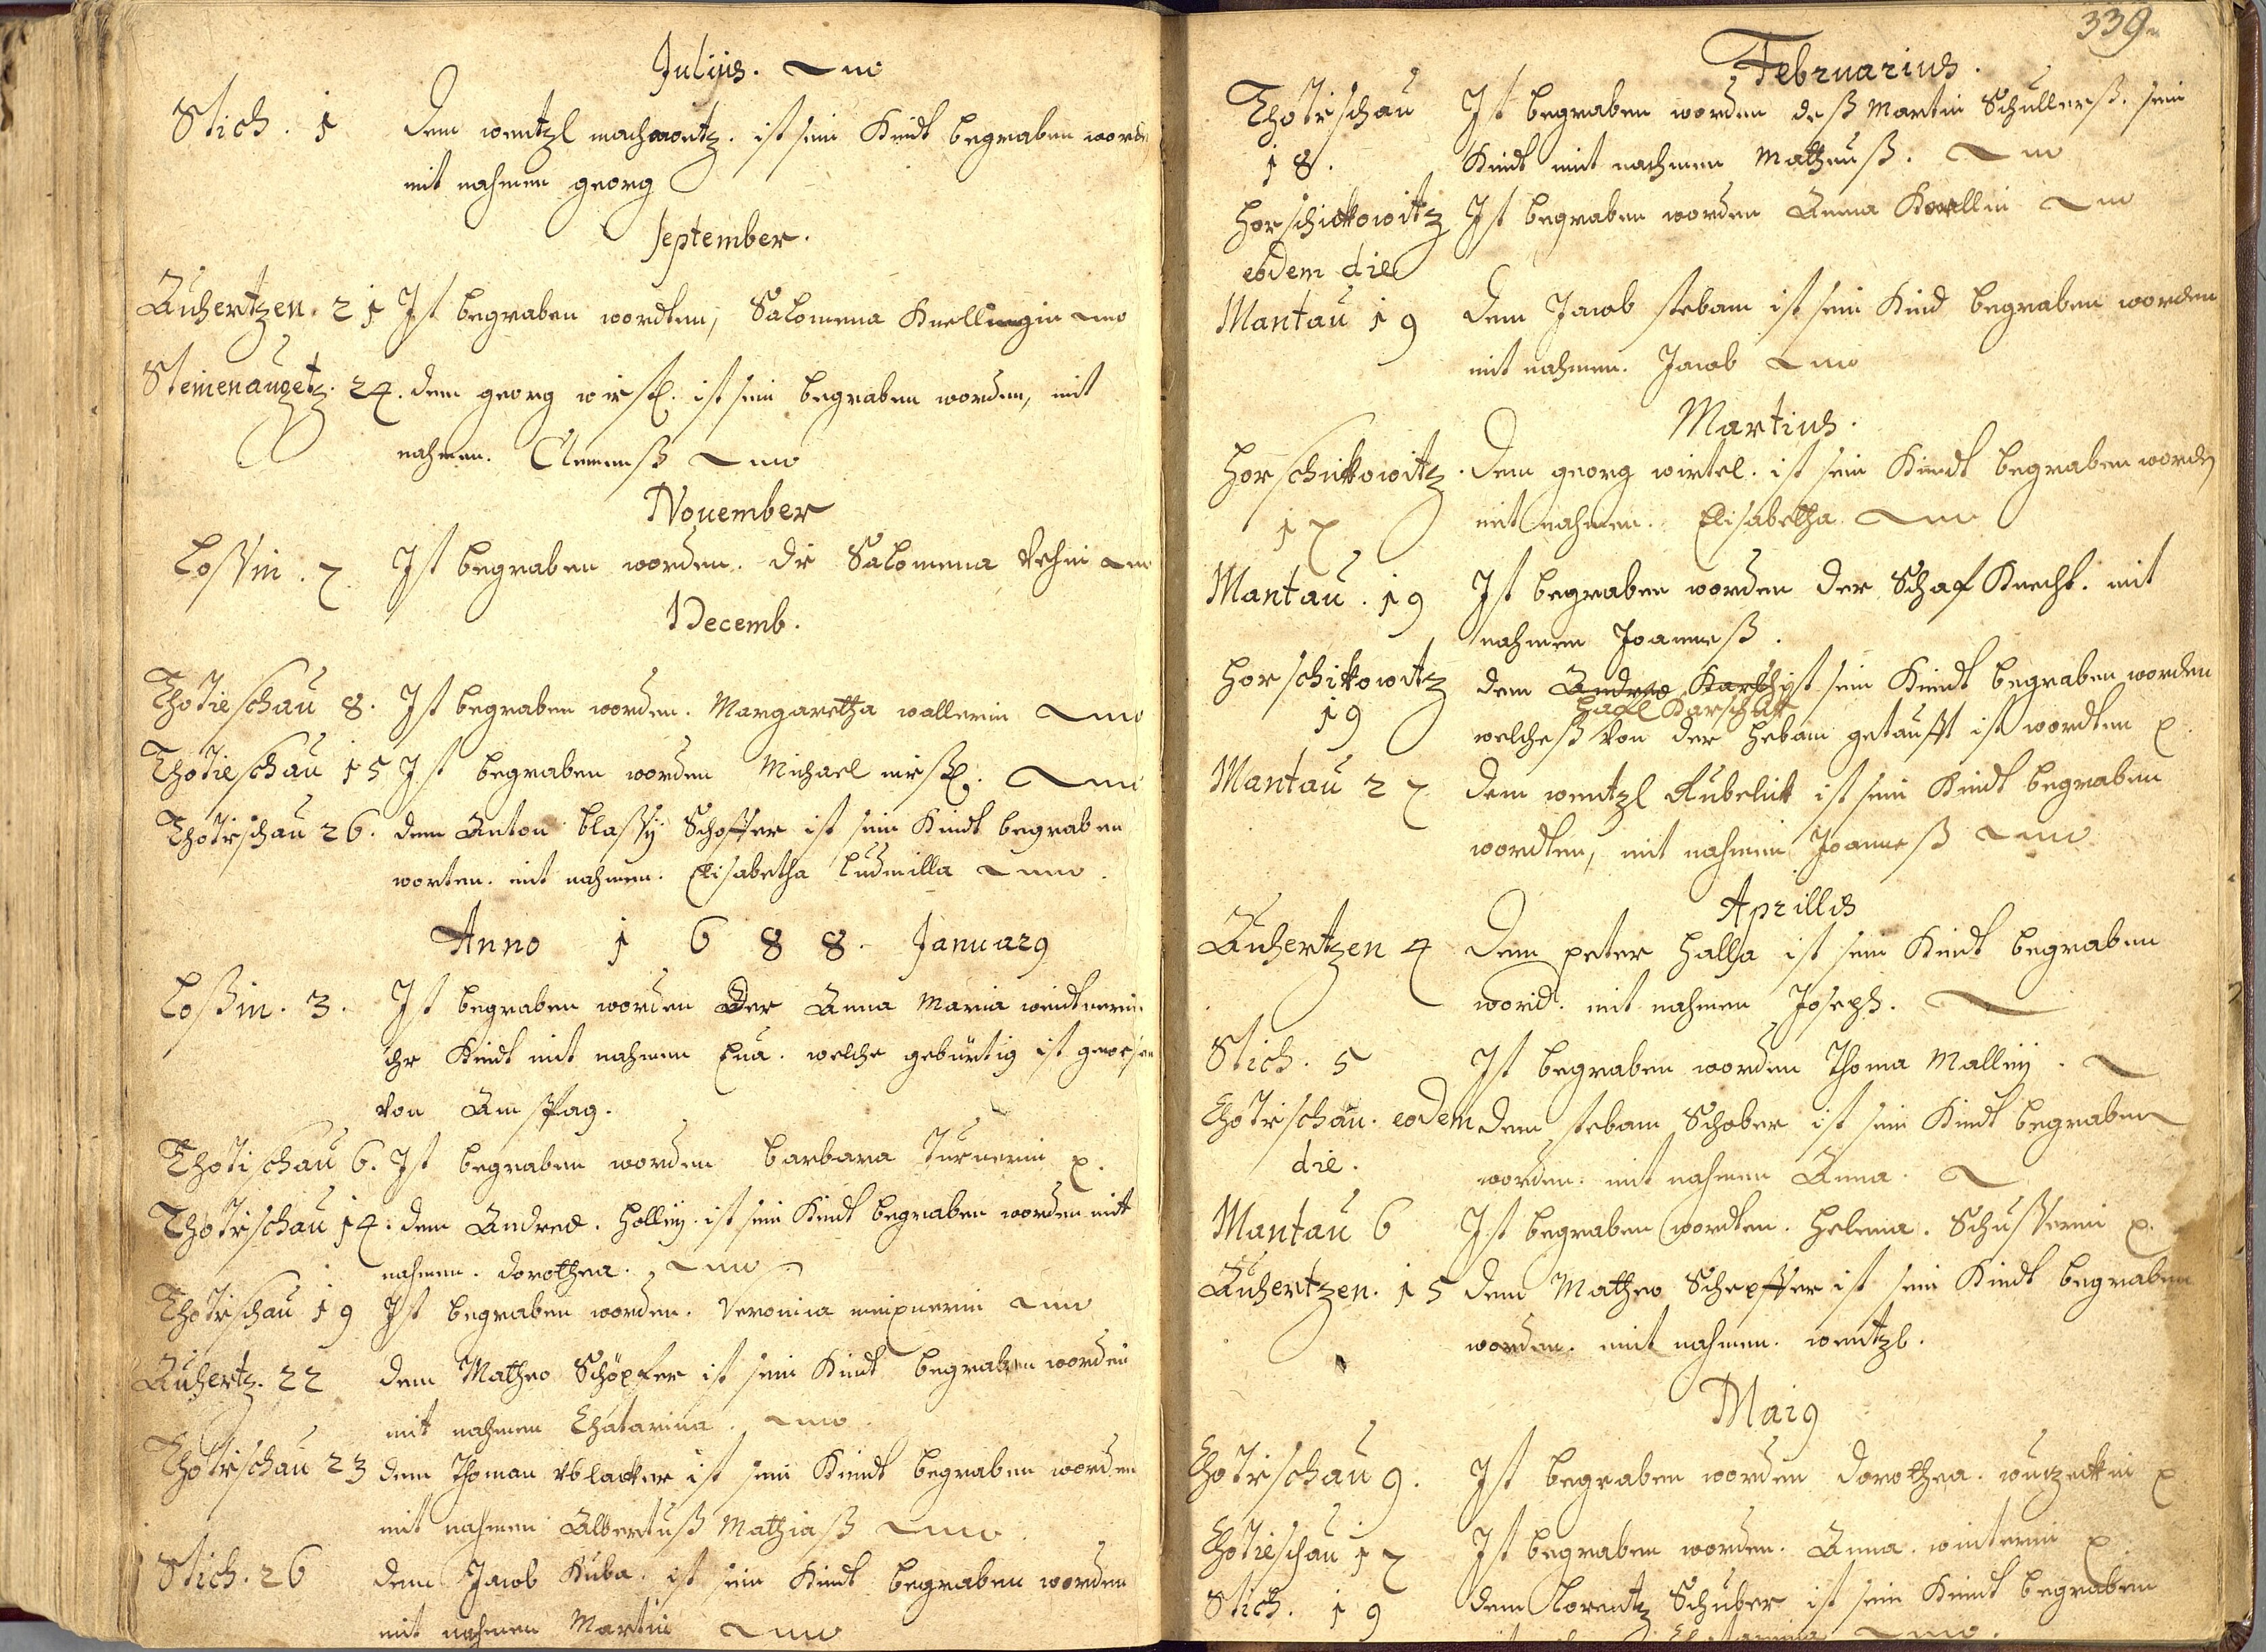 Julijus.
Stich. 1 dem wentzl machwontz. ist sein Kindt begraben word
mit nahmen georg
September.
Auhertzen. 21 Ist begraben wordten, Salomena Knellingin
Steinenaugetz. 24. dem georg ist sein begraben worden, mit
nahmen. Clemenß
November
Loßin. 7 Ist begraben worden. die Salomena
Decemb.
Chotieschau 8. Ist begraben worden. Margaretha wallerin
Chotieschau 15 Ist begraben worden Michael
Chotieschau 26. dem Anton blaßÿ Schaffer ist sein Kindt begraben
worten. mit nahmen. Elisabetha Ludmilla
Anno 1688. Januarg
Loßin. 3. Ist begraben worden Der Anna Maria weidtnerin
ihr Kindt mit nahmen Eua. welche gebürtig ist gewesen
von
Chotischau 6. Ist begraben worden barbara Turnerin
Chotieschau 14. dem Andreæ. Holliÿ. ist sein Kindt begraben worden mit
nahmen. dorothea.
Chotieschau 19 Ist begraben worden. Veronica
Auhertz. 22 dem Matheo Schöpfer ist sein Kindt begraben worden
mit nahmen Chatarina.
Chotieschau 23 dem Thoman vblacker ist sein Kindt begraben worden
mit nahmen Albertuß Mathiaß
Stich. 26 dem Jacob Kuba. ist sein Kindt begraben worden
mit nahmen Martin
339
Februarius.
Chotieschau Ist begraben worden deß Martin Schullerß. sein
18. Kindt mit nachmen Matheuß.
Horschickowitz Ist begraben worden Anna
eodem die
Mantau 19 dem Jacob stebam ist sein Kind begraben worden
mit nahmen. Jacob
Martius.
Horschikowitz. dem georg wirtel. ist sein Kindt begraben worden
17 mit nahmen. Elisabetha
Mantau. 19 Ist begraben worden der Schaf Knecht. mit
nahmen Joanneß.
Horschikowitz dem Andreæ ist sein Kindt begraben worden
Hansl
19 welcheß von der Hebam getaufft ist wordten
Mantau 27 dem wentzl Kubelick ist sein Kindt begraben
wordten, mit nahmen Joanneß
Aprillis
Auhertzen 4 dem peter Halla ist sein Kindt begraben
word. mit nahmen Joseph.
Stich. 5 Ist begraben worden Thoma Malliÿ.
Chotieschau. eodem dem stebam Schober ist sein Kindt begraben
die. worden. mit nahmen Anna.
Mantau 6 Ist begraben wordten. Helena. Schusterin
Auhertzen. 15 dem Matheo Schepffer ist sein Kindt begraben
worden. mit nahmen. wentzl.
Maig
Chotieschau 9. Ist begraben worden dorothea.
Chotieschau 17 Ist begraben worden. Anna. winterin
Stich. 19 dem Lorentz Schuber ist sein Kindt begraben